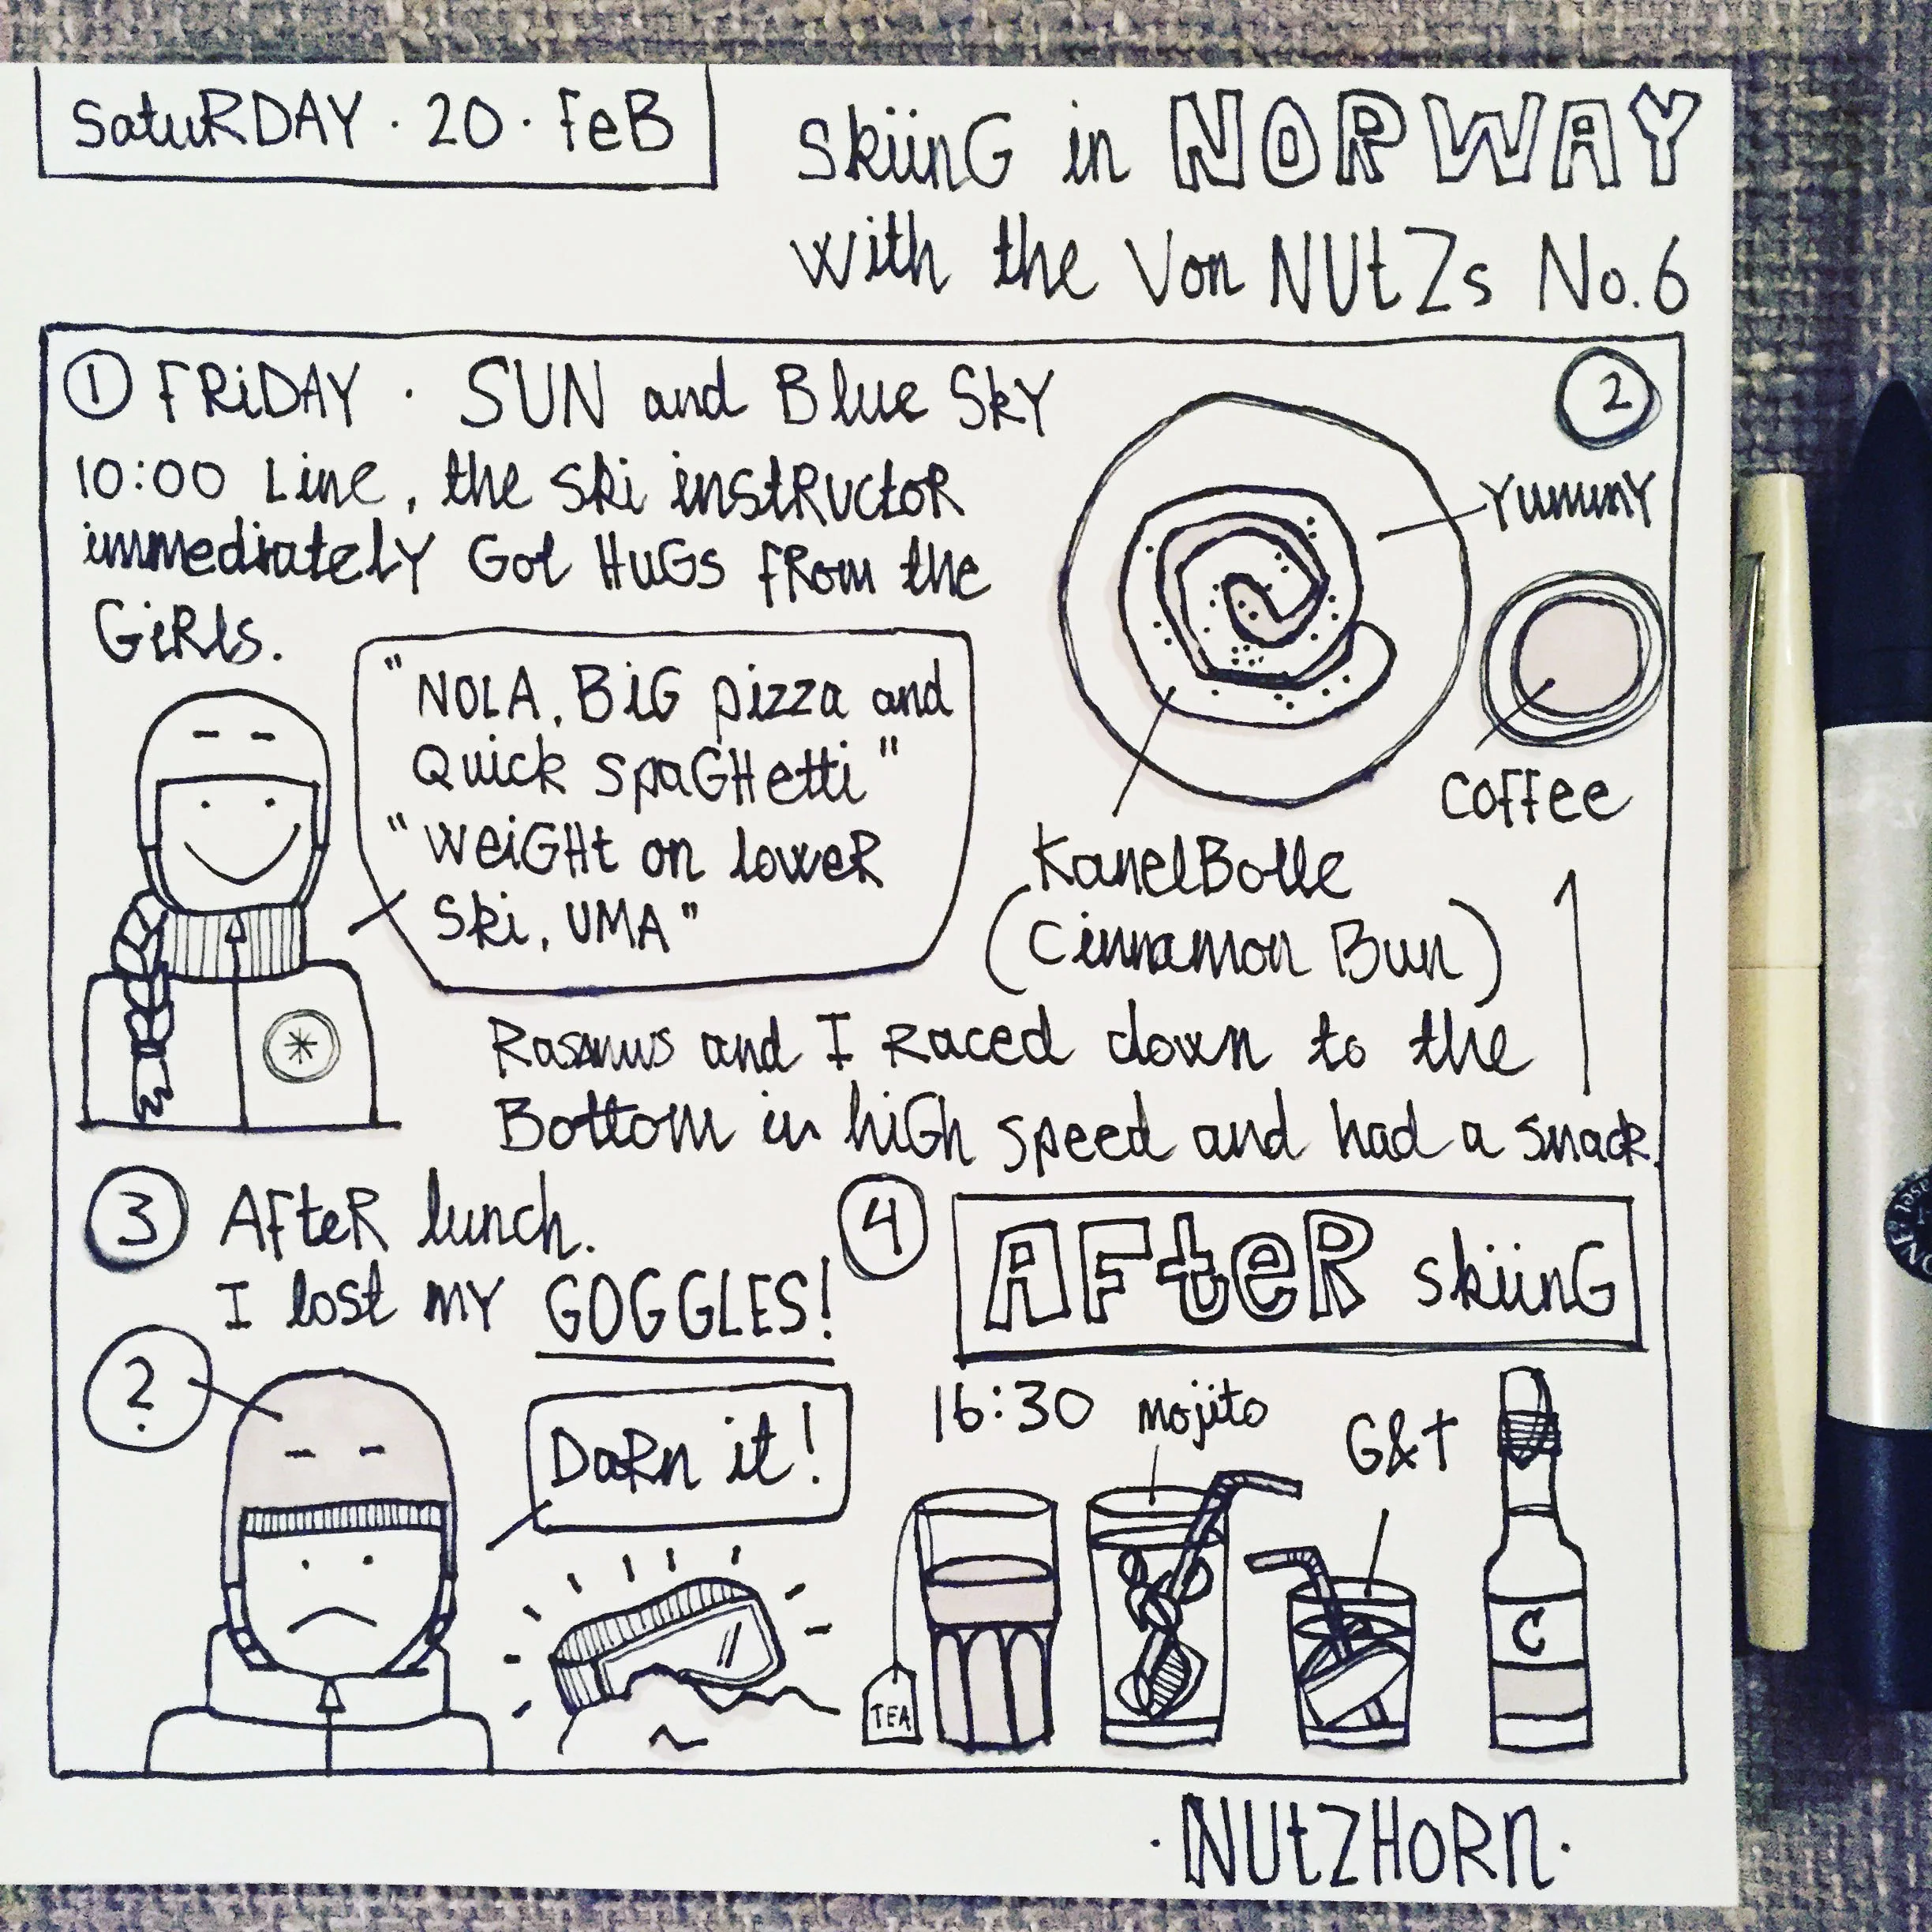 SatuRDAY · 20 · FeB
SkiinG in NORWAY
with the Von NUtZs No.6
1 FRiDAY · SUN and Blue SkY
2
10:00 Line, the ski instRuctoR
immediatelY Got HuGs fRom the
GiRls.
"NOLA, BiG pizza and
Quick spaGHetti"
"WeiGHt on loweR
Ski, UMA"
YummY
Coffee
KanelBolle
(Cinnamon Bun)
Rasmus and I Raced down to the
Bottom in hiGh speed and had a snack.
3 AfteR lunch.
I lost mY GOGGLES!
?
DaRn it!
4 AFteR skiinG
16:30 mojito
G&T
TEA
C
· NUtZHoRn ·